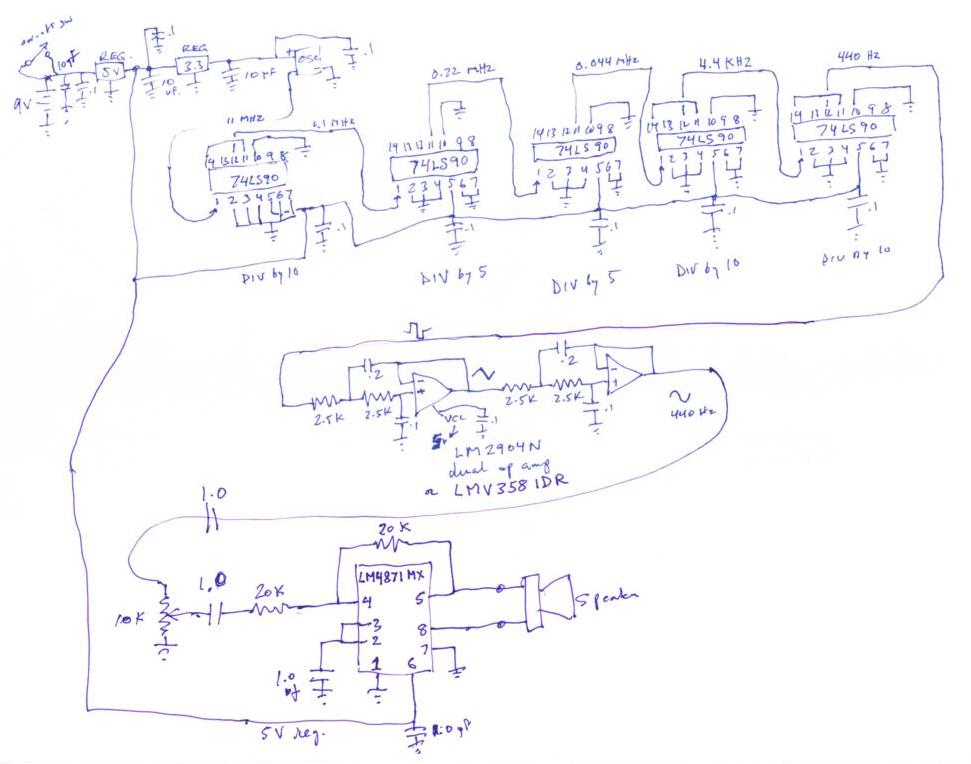 on-off sw
9V
10μF
.1
REG.
5V
.1
10
μF.
REG
3.3
10 μF
+
OSC
.1
11 MHZ
1.1 MHZ
0.22 MHZ
0.044 MHZ
4.4 KHZ
440 HZ
14 13 12 11 10 9 8
74LS90
1 2 3 4 5 6 7
.1
DIV by 10
14 13 12 11 10 9 8
74LS90
1 2 3 4 5 6 7
.1
DIV by 5
14 13 12 11 10 9 8
74LS90
1 2 3 4 5 6 7
.1
DIV by 5
14 13 12 11 10 9 8
74LS90
1 2 3 4 5 6 7
.1
DIV by 10
14 13 12 11 10 9 8
74LS90
1 2 3 4 5 6 7
.1
DIV by 10
2.5K
.2
2.5K
.1
-
+
VCC
5V
.1
2.5K
.2
2.5K
.1
-
+
440 HZ
LM2904N
dual op amp
or LMV358IDR
1.0
10K
1.0
20K
20K
LM4871MX
4
3
2
1
5
8
7
6
1.0
μf
Speaker
5V reg.
1.0 μF